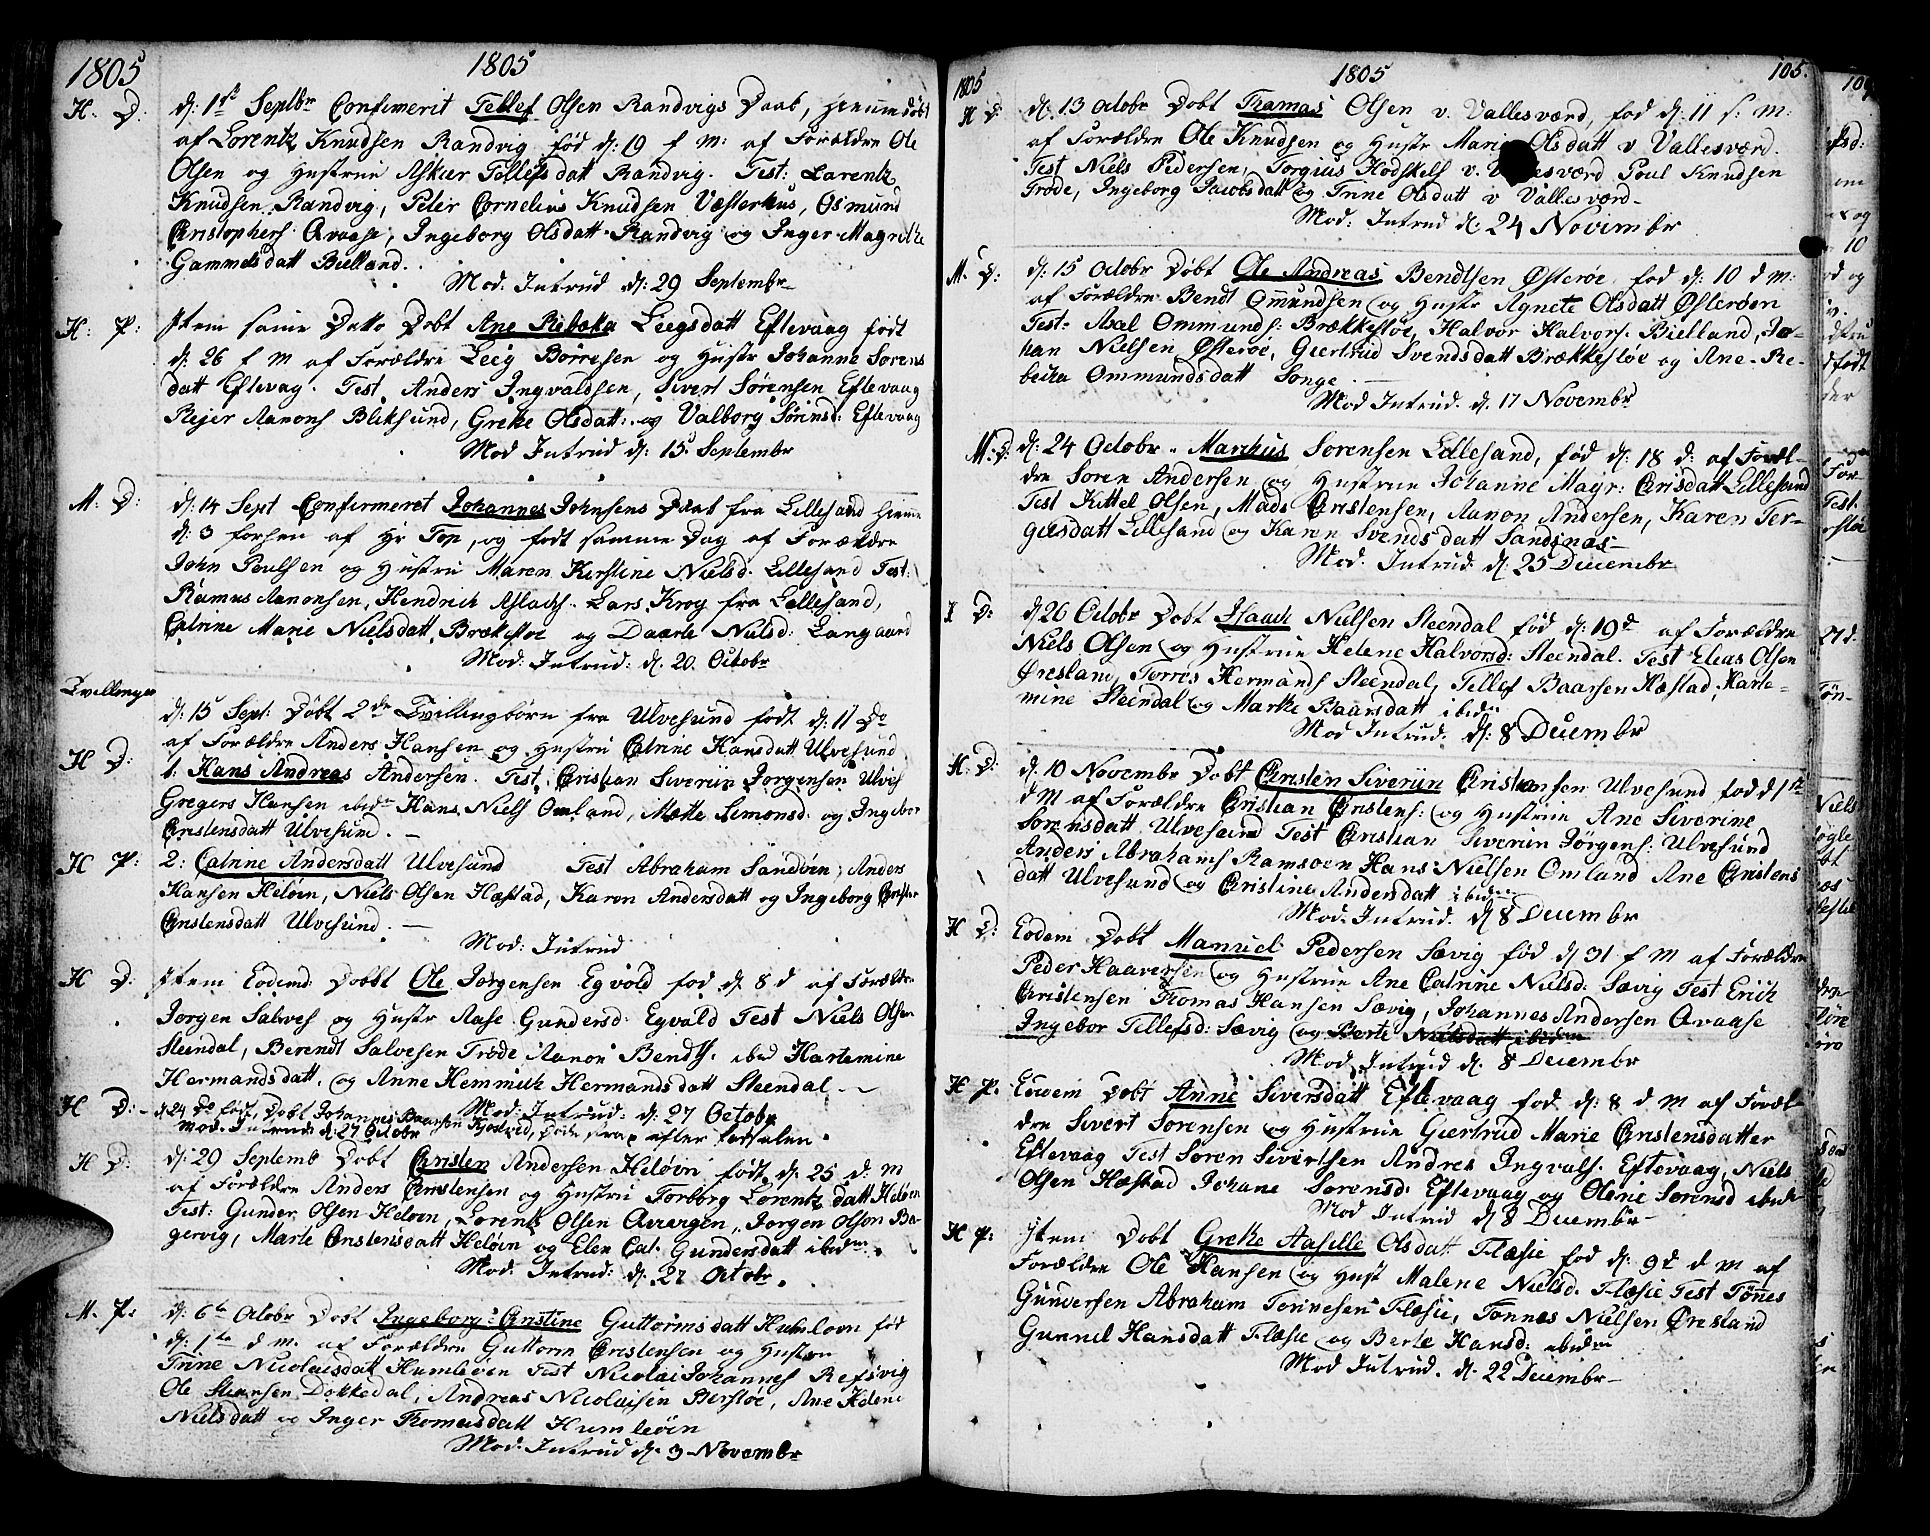 1805
1805
H. D. d: 1ste Septbr Confimerit Tellef Olsen Randvigs Daab, hiemmedøbt
af Lorentz Knudsen Randvig fød d: 19 f M: af Forældre Ole
Olsen og Hustrue Asker Tellefsdatt Randvig. Test: Larentz
Knudsen Randvig, Peter Cornelius Knudsen Vesterhus, Osmund
Cristophers Avaase, Ingeborg Olsdatt Randvig og Inger Magrethe
Gammelsdatt Bielland.
Mod. Introd d: 29 Septembr
H: P: Item samme Datto Døbt Ane Rebeka Leegsdatt Eftevaag født
d: 26 f M af Forældre Leeg Børresen og Hustr Johanne Sørens
datt Eftevag. Test. Anders Ingvaldsen, Sivert Sørensen Eftevaag
Rejer Aanons Bliksund, Grethe Olsdatt: og Valborg Sørinsd: Eftevaag
Mod Introd d: 15 Septembr
M: D: d: 14 Sept Confirmeret Johannes Johnsens Daab fra Lillesand hiemme
d: 3 forhen af Hr Top, og født samme Dag af Forældre
John Poulsen og Hustru Maren Kirstine Nielsd. Lillesand Test:
Rasmus Aanonsen, Hendrich Aslachs. Lars Krog fra Lillesand,
Catrine Marie Nielsdatt Brækistøe og Daarte Nielsd: Langaard
Mod: Introd: d. 20. Octobr
Tvillinger
d: 15 Sept: Døbt 2de Tvillingbørn fra Ulvesund født d: 11 Do
af Forældre Anders Hansen og Hustru Catrine Hansdatt Ulvesund
H D: 1: Hans Andreas Andersen. Test: Cristian Severiin Jørgensen Ulves
Gregers Hansen ibidm Hans Niels Omland, Mette Simonsd: og Ingebor
Cristensdatt Ulvesund. —
H P: 2: Catrine Andersdatt Ulvesund Test Abraham Sandøen, Anders
Hansen Heløen, Niels Olsen Hæstad, Karen Andersdatt og Ingeborg
Cristensdatt Ulvesund. —
Mod: Introd
H D: Item Eodemd Døbt Ole Jørgensen Egvold fød d: 8 d af Forældre
Jørgen Salves og Hustr Aase Gundersd: Egvald Test Niels Olsen
Steendal, Berendt Salvesen Trøde, Aanon Bendts. ibid Hartemine
Hermandsdatt, og Anne Hemmich Hermandsdatt Steendal —
Mod: Introd: d: 27 Octobr
H D: d 24 Do født, Døbt Johannes Baarsen Fjøstved, døde strax efter fødselen.
Mod. Introd d: 27 Octobr
H D: d: 29 Septemb Døbt Cristen Andersen Heløen født d: 25 d: M
af Forældre Anders Cristensen og Hustru Torborg Lorentzdatt Heløen
Test: Gunder Olsen Heløen, Lorentz Olsen Avargen, Jørgen Olsen Ba-
gervig, Marte Cristensdatt Heløen og Elen Cat. Gundersdatt ibidm
Mod: Introd: d: 27 Octobr.
M. P: d: 6te Octobr Døbt Ingeborg Cristine Guttormsdatt Humløen fød
d: 1ste d m. af Forældre Guttorm Cristensen og Hustru
Trine Nicolaisdatt Humløen Test Nicolai Johannes Refsvig
Ole Steensen Dokkedal, Andreas Nicolaisen Berstøe, Ane Helene
Nielsdatt og Inger Tromasdatt Humløen
Mod: Introd d. 3 Novembr
1805
1805
105.
H D: d. 13 Octobr Døbt Tramas Olsen v. Vallesværd, fød d: 11 s: M:
af Forældre Ole Knudsen og Hustr Marie Olsdatt v Vallesværd.
Test Niels Pedersen, Torgius Hodskels v. Vallesværd Poul Knudsen
Trøde, Ingeborg Jacobsdatt og Trine Olsdatt v Vallesværd
Mod: Introd d: 24 Novembr
M. D: d: 15 Octobr Døbt Ole Andreas Bendtsen Østerøe, fød d: 10 d M:
af Forældre Bendt Omundsen og Hustr Agnete Olsdatt Østerøen
Test: Axel Ommunds: Brækkestøe, Halvor Halvors: Bielland, Jo-
han Nielsen Østerøe, Giertrud Svendsdatt Brækkestøe og Ane Re-
becka Ommundsdatt Songe. —
Mod Introd. d. 17 Novembr
M: D: d: 24 Octobr. Marchus Sørensen Lillesand, fød d: 18 d: af Foræl
dre Søren Andersen og Hustrue Johanne Magr: Crisdatt Lillesand
Test Kittel Olsen, Mads Cristensen, Aanon Andersen, Karen Ter-
giersdatt Lillesand og Karen Svendsdatt Sandsnæs
Mod. Introd. d: 25 Decembr
I D: d 26 Octobr Døbt Isaach Nielsen Steendal fød d: 19d af Forældre
Niels Olsen og Hustrue Helene Halvorsd: Steendal. Test Elias Olsen
Øresland, Torres Hermands Steendal, Tellef Baarsen Hæstad, Harte-
mine Steendal og Marthe Baarsdatt ibidm
Mod Introd. d: 8 Decembr
H: D: d. 10 Novembr Døbt Cristen Siveriin Cristiansen Ulvesund fød d 1ste
d M af Forældre Cristian Cristens: og Hustrue Ane Siverine
Sørensdatt Ulvesund Test Cristian Siveriin Jørgens: Ulvesund
Anders Abrahams Ramsøen Hans Nielsen Omland Ane Cristens
datt Ulvesund og Cristine Andersdatt ibidm
Mod. Introd. d 8 Decembr
H D: Eodem Døbt Manuel Pedersen Sævig fød d 31 f M af Forældre
Peder Haaversen og Hustrue Ane Catrine Nielsd: Sævig Test Erich
Cristensen Tromas Hansen Sævig, Johannes Andersen Avaase
Ingebor Tellefsd: Sævig og Berte Nielsdatt ibidm
Mod Introd d. 8 Decembr
H P: Eodem Døbt Anne Siversdatt Eftevaag fød d: 8 d M af Foræl
dre Sivert Sørensen og Hustrue Giertrud Marie Cristensdatter
Eftevaag Test Søren Sivertsen Andres Ingvals. Eftevaag, Niels
Olsen Hæstad Johane Sørensd: Eftevaag og Olene Sørensd ibid
Mod Introd d 8 Decembr
H P: Item Døbt Grethe Aasille Olsdatt Flæsie fød d: 9d d M af
Forældre Ole Hansen og Hust Malene Nielsd. Flæsie Test Tønes
Gundersen Abraham Tønnesen Flæsie, Tønnes Nielsen Øresland
Gunnil Hansdatt Flæsie og Berte Hansd: ibidm
Mod Introd. d. 22 Decembr